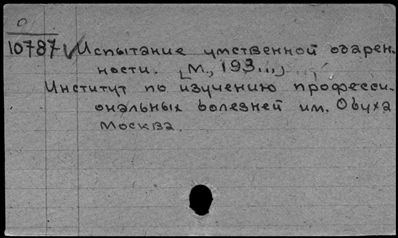 0
10787 Испытание умственной одарен-
ности. [М., 193..,]
Институт по изучению професси-
ональных болезней им. Обуха
Москва.